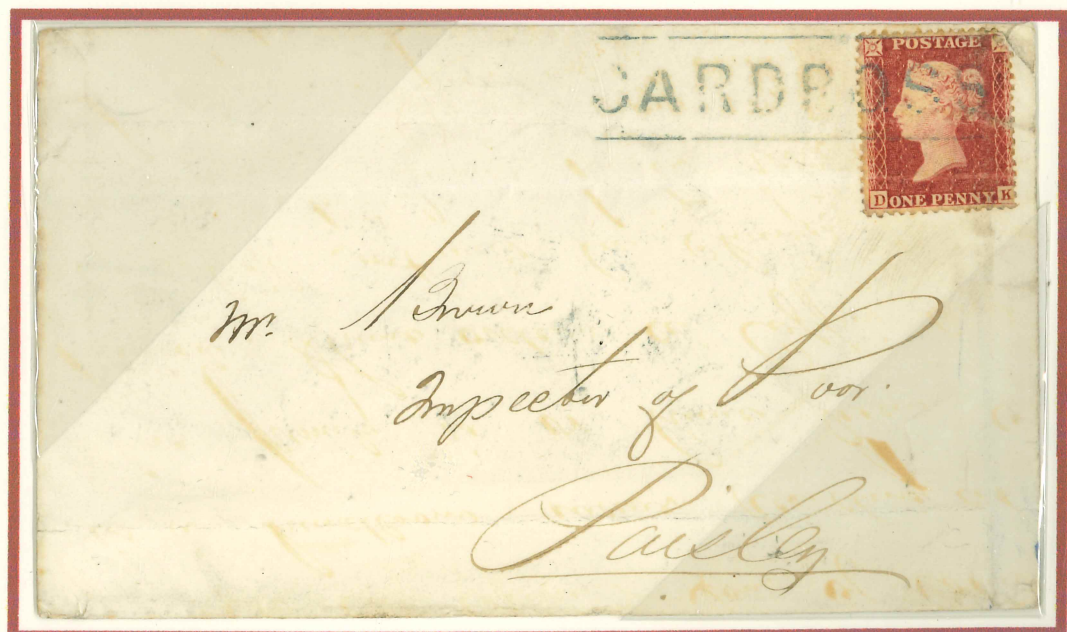 CARDROSS
POSTAGE
D ONE PENNY K
Mr. Brown
Inspector of Poor.
Paisley